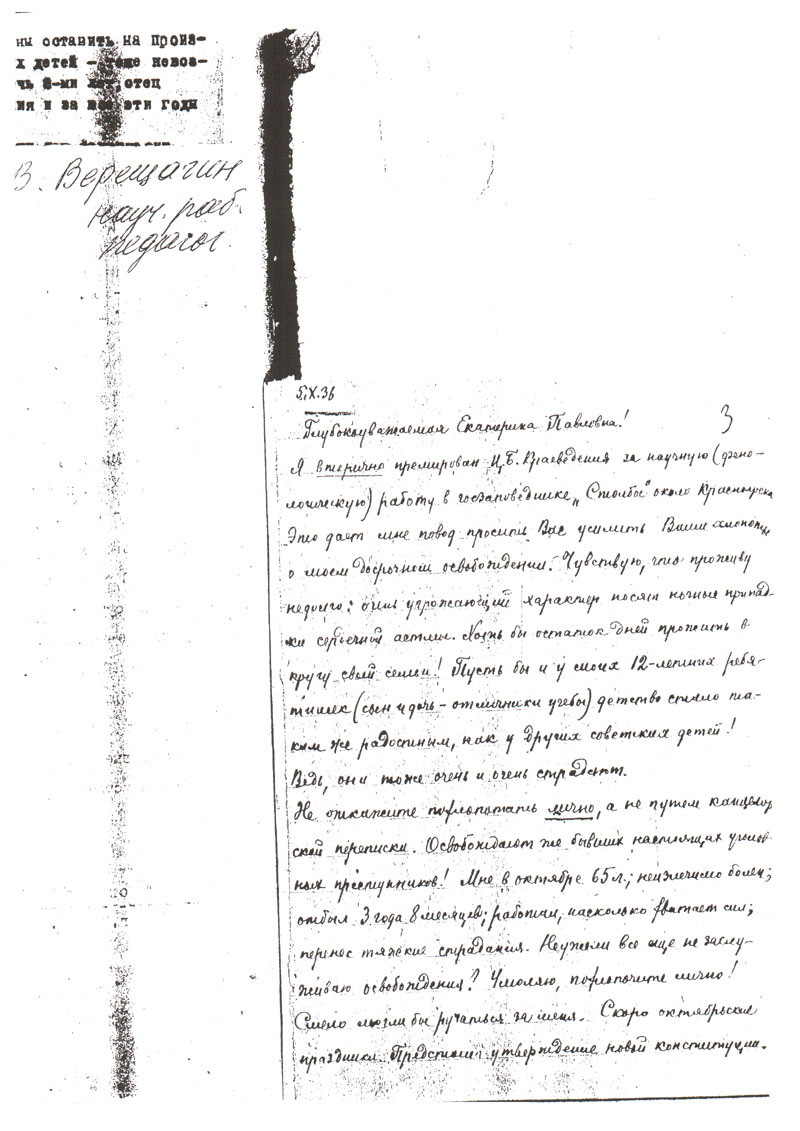 ны оставить на произ-
х детей – тоже невоз-
чь 8-ми лет, отец
ия и за все эти годы
В. Верещагин
науч. раб.
педагог.
5.X.36
3
Глубокоуважаемая Екатерина Павловна!
Я вторично премирован Ц.Б. Краеведения за научную (фено-
логическую) работу в госзаповеднике „Столбы" около Красноярска
Это дает мне повод просить Вас усилить Ваши хлопоты
о моем досрочном освобождении. Чувствую, что проживу
недолго: очень угрожающий характер носят ночные припад-
ки сердечной астмы. Хоть бы остаток дней прожить в
кругу своей семьи! Пусть бы и у моих 12-летних ребя-
тишек (сын и дочь – отличники учебы) детство стало та-
ким же радостным, как у других советских детей!
Ведь, они тоже очень и очень страдают.
Не откажите похлопотать лично, а не путем канцеляр
ской переписки. Освобождают же бывших настоящих уголов-
ных преступников! Мне в октябре 65 л.; неизлечимо болен;
отбыл 3 года 8 месяцев; работаю, насколько хватает сил;
перенес тяжкие страдания. Неужели все еще не заслу-
живаю освобождения? Умоляю, похлопочите лично!
Смело могли бы ручаться за меня. Скоро октябрьские
праздники. Предстоит утверждение новой конституции.